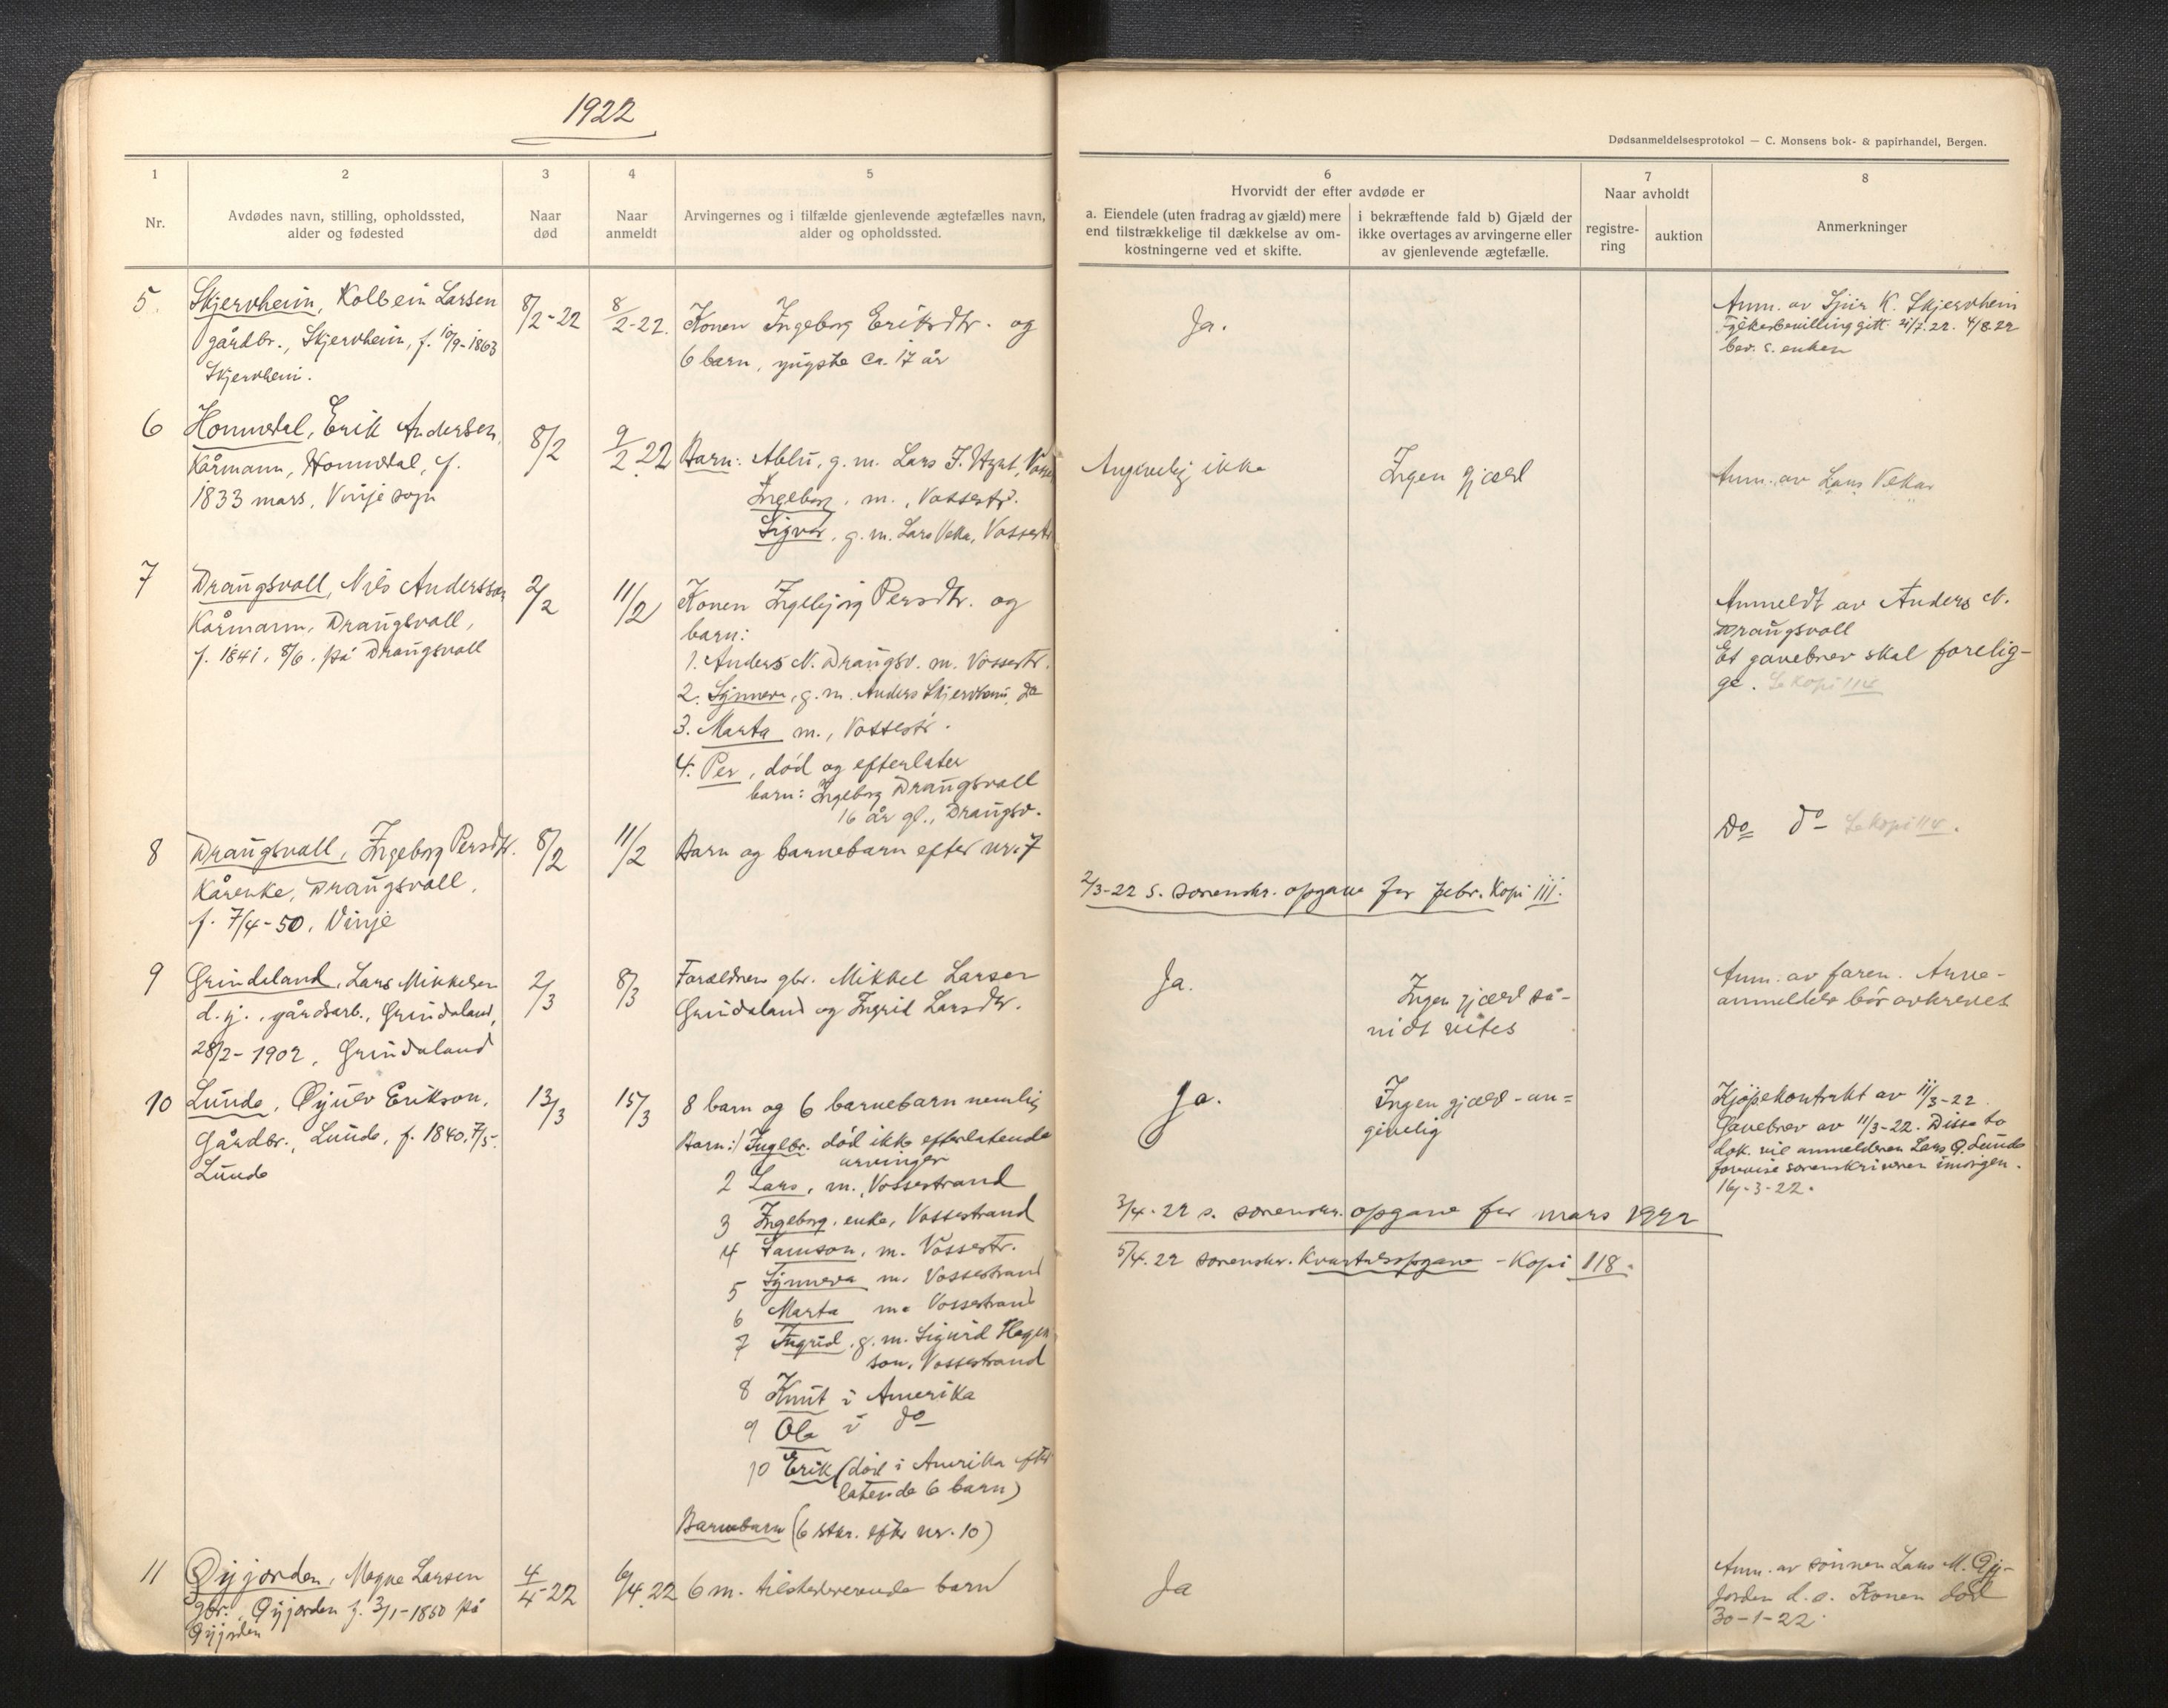 1922
Dødsanmeldelsesprotokol — C. Monsens bok- & papirhandel, Bergen.
1
Nr.
2
Avdødes navn, stilling, opholdssted,
alder og fødested
3
Naar
død
4
Naar
anmeldt
5
Arvingernes og i tilfælde gjenlevende ægtefælles navn,
alder og opholdssted.
6
Hvorvidt der efter avdøde er
a. Eiendele (uten fradrag av gjæld) mere
end tilstrækkelige til dækkelse av om-
kostningerne ved et skifte.
i bekræftende fald b) Gjæld der
ikke overtages av arvingerne eller
av gjenlevende ægtefælle.
7
Naar avholdt
registre-
ring
auktion
8
Anmerkninger
5
Skjervheim, Kolbein Larsen
gårdbr., Skjervheim, f. 10/9-1863
Skjervheim.
8/2-22
8/2-22.
Konen Ingeborg Eriksdtr. og
6 barn, yngste ca. 17 år
Ja.
Anm. av Sjur K. Skjervheim
Fylkesbevilling gitt 21/7.22. 4/8.22
bev. s. enken
6
Hommedal, Erik Andersen,
Kårmann, Hommedal, f.
1833 mars, Vinje sogn
8/2
9/2 22
Barn: Ablu, g. m. Lars
Ingeborg, m., Vossestr.
Sigvor, g. m. Lars Veka, Vossestr
Angivelig ikke
Ingen gjæld
Anm. av Lars Vekar
7
Draugsvoll, Nils Andersson
Kårmann, Draugsvoll,
f. 1841, 8/6. på Draugsvoll
2/2
11/2
Konen Ingebjørg Persdtr. og
barn:
1. Anders N. Draugsv. m. Vossestr.
2. Synneva, g. m. Anders Skjervheim, do
3. Marta m., Vossestr.
4. Per, død og efterlater
barn: Ingeborg Draugsvoll
16 år gl., Draugsv.
Anmeldt av Anders N.
Draugsvoll
Et gavebrev skal forelig-
ge. Se kopi 114
8
Draugsvoll, Ingeborg Persdtr.
Kårenke, Draugsvoll,
f. 7/4-50, Vinje
8/2
11/2
Barn og barnebarn efter nr. 7
Do do Se kopi 114.
2/3-22 s. sorenskr. opgave for febr. Kopi 111.
9
Grindeland, Lars Mikkelsen
d. y., gårdsarb., Grindeland,
28/2-1902, Grindeland
2/3
8/3
Forældrene gbr. Mikkel Larsen
Grindeland og Ingrid Larsdtr.
Ja.
Ingen gjæld så-
vidt vites
Anm. av faren. Arve-
anmeldelse bør avkreves
10
Lunde, Øyulv Erikson,
Gårdbr., Lunde, f. 1840, 7/5.
Lunde
13/3
15/3
8 barn og 6 barnebarn nemlig
Barn: 1 Ingebr. død ikke efterlatende
arvinger
2 Lars, m., Vossestrand
3 Ingeborg, enke, Vossestrand
4 Samson, m. Vossestr.
5 Synneva m. Vossestrand
6 Marta m. Vossestrand
7 Ingrid, g. m. Sigurd Hagen
son, Vossestrand
8 Knut i Amerika
9 Ola i do
10 Erik (død i Amerika efter
latende 6 barn)
Barnebarn (6 stkr. efter nr. 10)
Ja.
Ingen gjæld - an=
givelig
Kjøpekontrakt av 11/3-22.
Gavebrev av 11/3-22. Disse to
dok. vil anmelderen Lars Ø. Lunde
forevise sorenskriveren imorgen.
16-3-22.
3/4-22 s. sorenskr. opgave for mars 1922
5/4.22 sorenskr. Kvartalsopgave - Kopi 118.
11
Øyjorden, Magne Larsen
gbr. Øyjorden f. 3/1-1850 på
Øyjorden
4/4-22
6/4.22
6 m. tilstedeværende barn
Ja
Anm. av sønnen Lars M. Øy-
jorden d. e. Konen død
30-1-22.